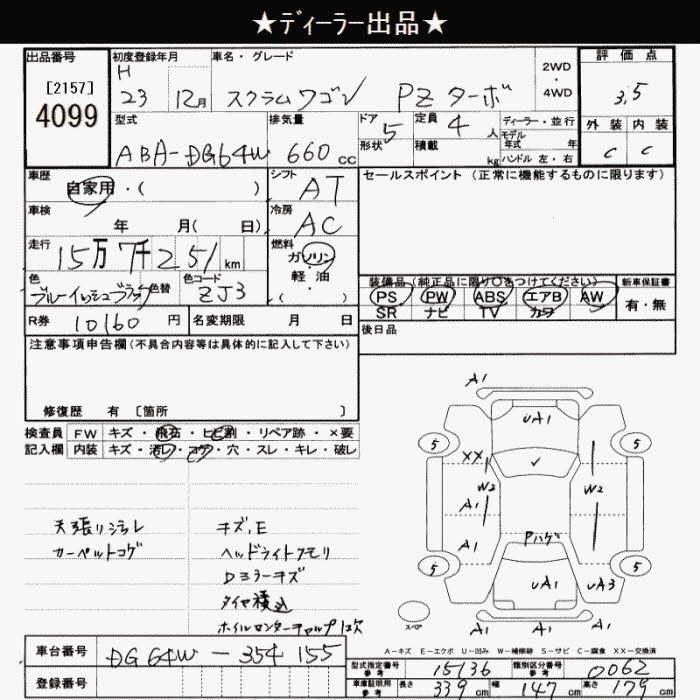 ★ディーラー出品★
出品番号
[2157]
4099
初度登録年月
H
23 12月
車名・グレード
スクラムワゴン PZターボ
2WD
・
4WD
評価点
3.5
外装 内装
C C
型式
ABA-DG64W
排気量
660 cc
ドア
5
形状
定員
4 人
積載
kg
ディーラー・並行
モデル
年式 年
ハンドル 左・右
車歴
自家用・( )
シフト
AT
セールスポイント (正常に機能するものに限ります)
車検
年 月( 日)
冷房
AC
走行
15万7千251 km
燃料
ガソリン
軽・油
( )
色
ブルーイッシュブラック
色替
色コード
ZJ3
装備品(純正品に限り○をつけてください)
PS PW ABS エアB AW
SR ナビ TV カワ
新車保証書
有・無
R券 10160 円
名変期限 月 日
後日品
注意事項申告欄(不具合内容等は具体的に記入して下さい)
修復歴 有 〔箇所 〕
検査員
記入欄
FW キズ・飛石・ヒビ割・リペア跡・×要
内装 キズ・汚レ・コゲ・穴・スレ・キレ・破レ
天張りシミレ
カーペットコゲ
キズ、E
ヘッドライトクモリ
Dミラーキズ
タイヤ積込
ホイルセンターキャップ1欠
A1
UA1
5 5
XX
✓
W2 W2
A1
A1
Pハゲ
5 5
UA1 UA3
スペア
A1 A1 A1
A-キズ E-エクボ U-凹み W-補修跡 S-サビ C-腐食 XX-交換済
車台番号 DG64W-354155
登録番号
型式指定番号
参考
15136
類別区分番号
参考
0062
車庫証明用
参考
長さ 339cm 幅 147cm 高さ 179cm